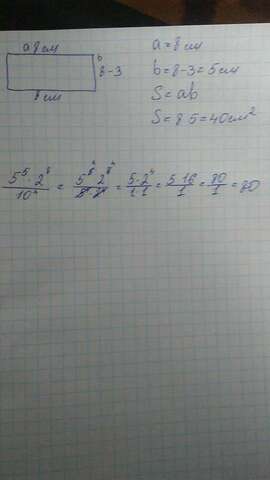 a 8 см
b
8-3
8 см
a = 8 см
b = 8-3 = 5 см
S = ab
S = 8·5 = 40 см²
5⁵·2⁸/10⁴ = 5⁵·2⁸/5⁴·2⁴ = 5·2⁴/1·1 = 5·16/1 = 80/1 = 80